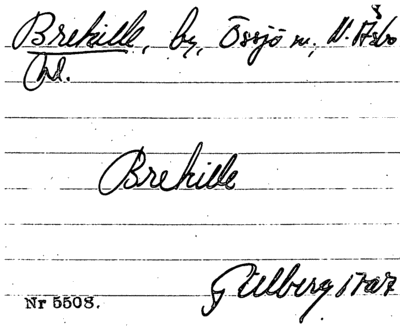 Brekille, by, Össjö sn, N. Åsbo
hd.
Brekille
Gillberg 1767
Nr 5508.